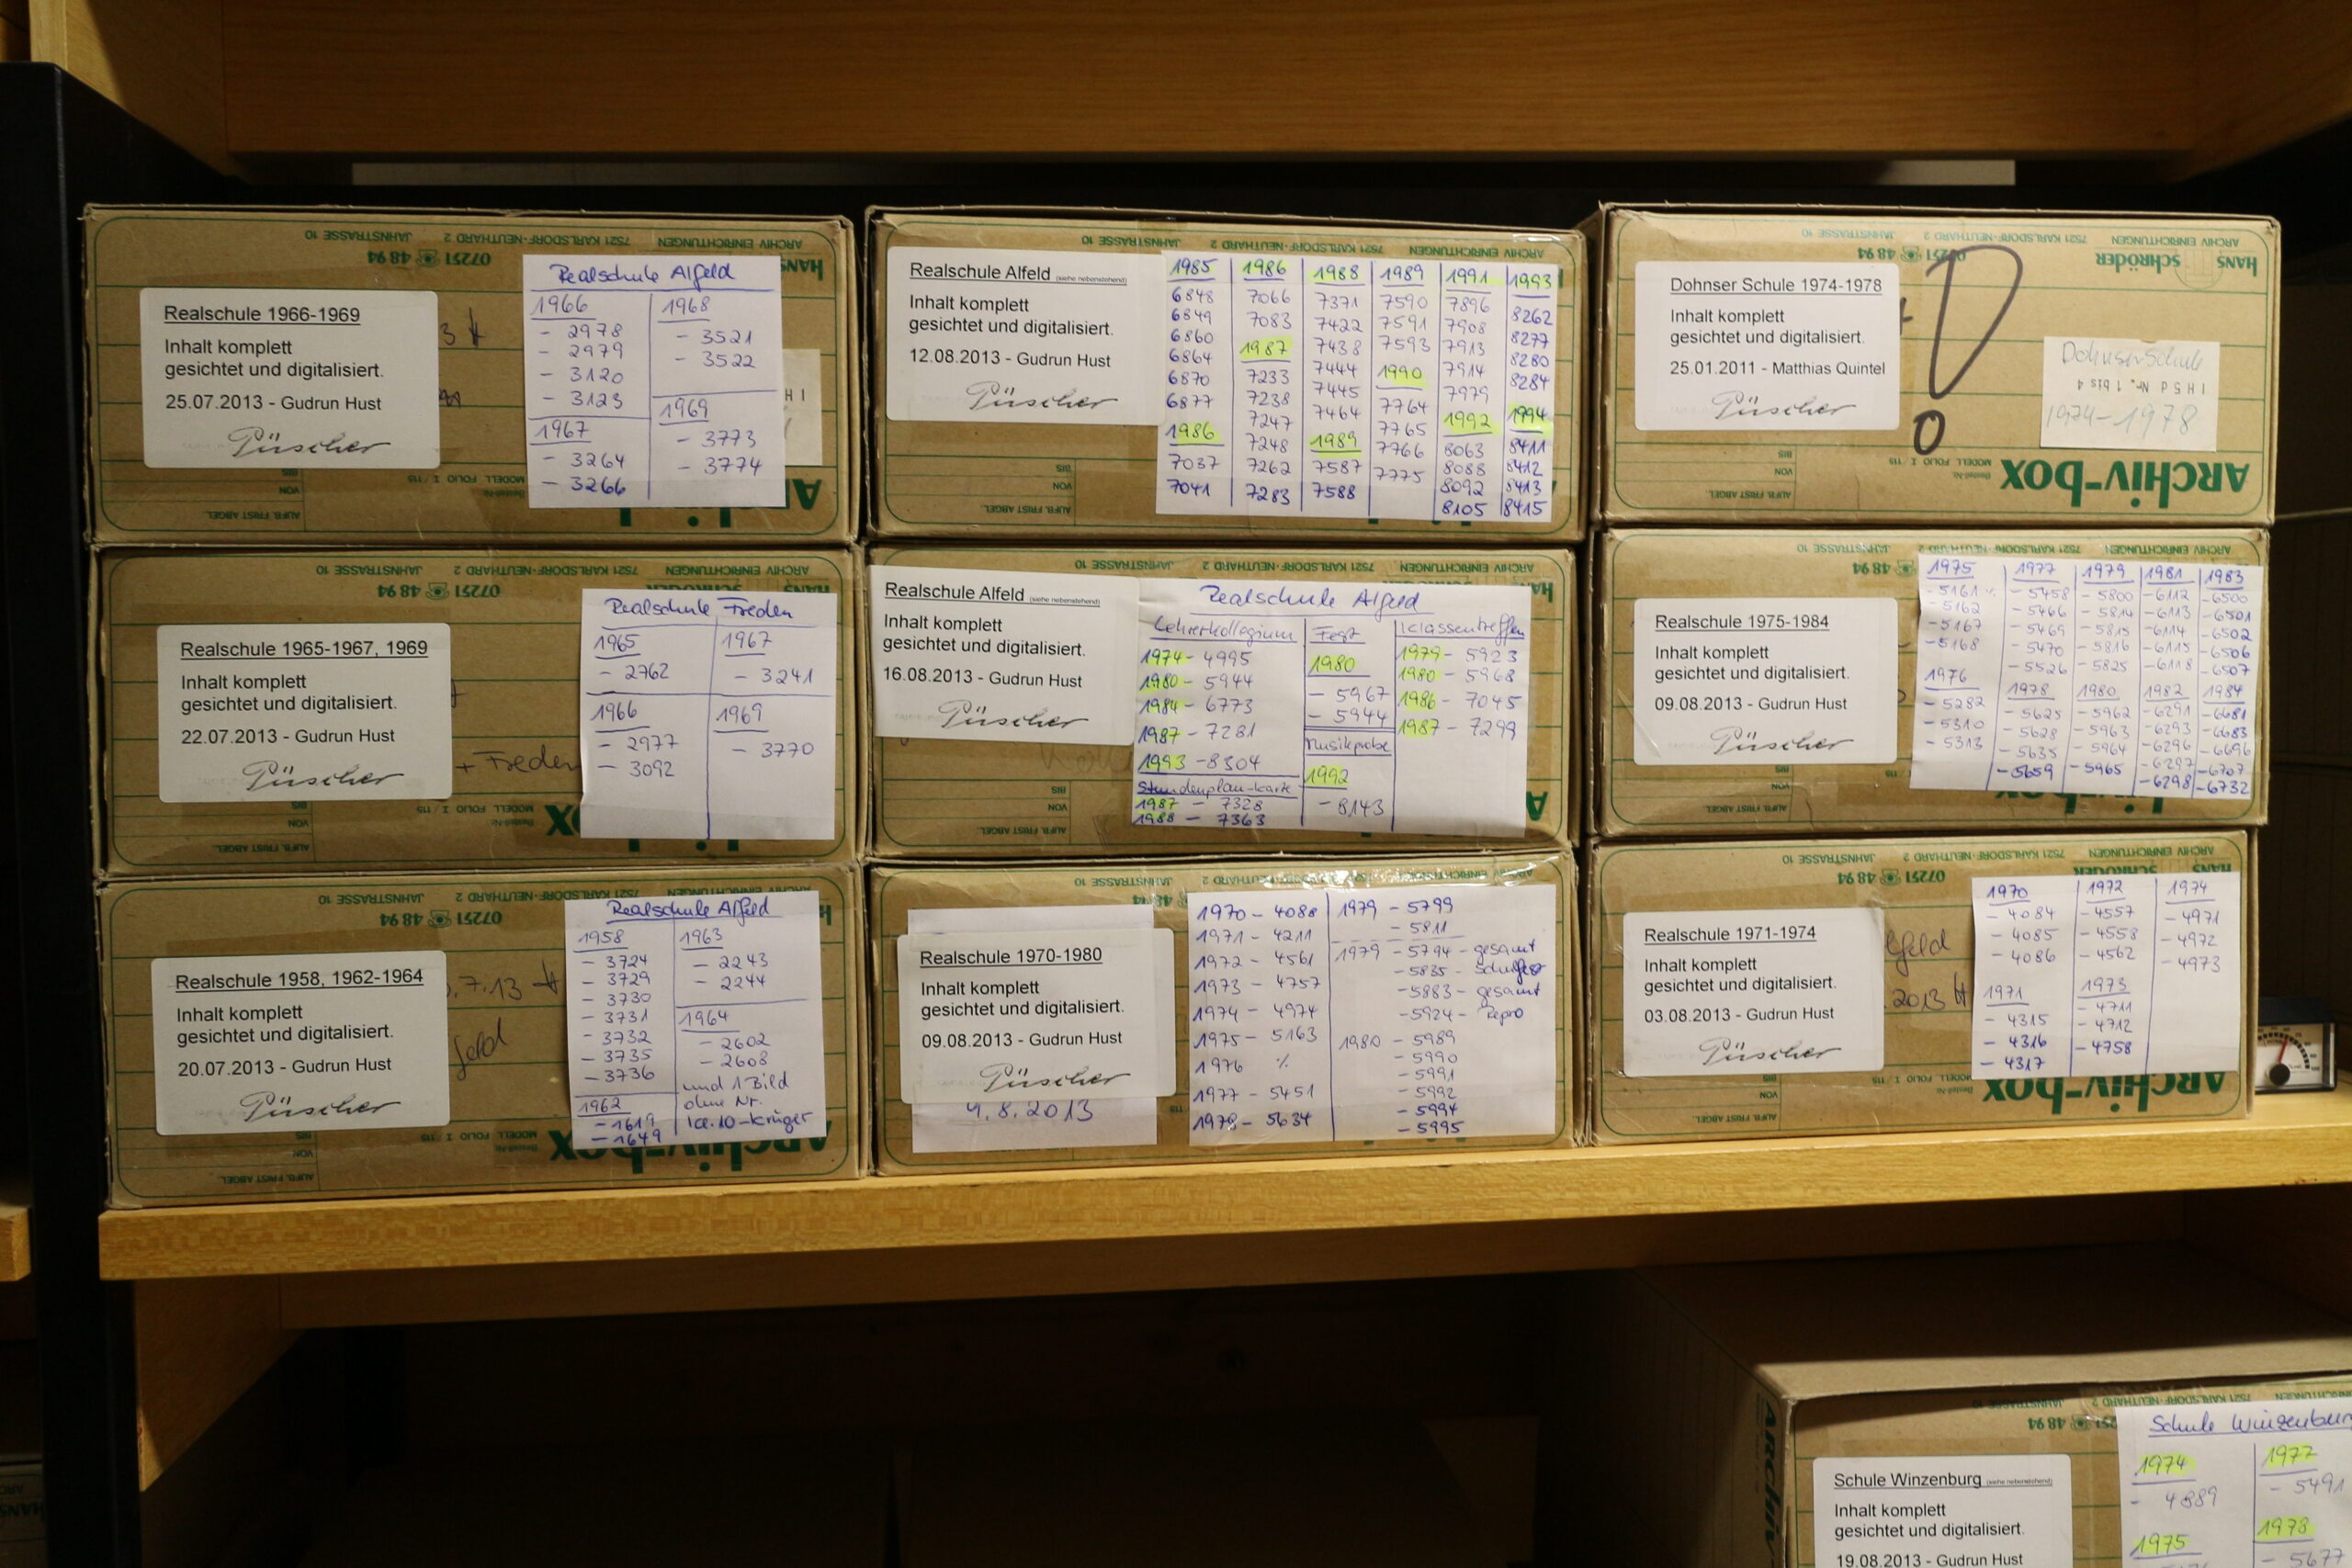 Realschule 1966-1969
Inhalt komplett
gesichtet und digitalisiert.
25.07.2013 - Gudrun Hust
Püscher
Realschule Alfeld
1966
- 2978
- 2979
- 3120
- 3123
1967
- 3264
- 3266
1968
- 3521
- 3522
1969
- 3773
- 3774
ARCHIV EINRICHTUNGEN 7521 KARLSDORF-NEUTHARD 2 JAHNSTRASSE 10
07251 4894
Realschule Alfeld (siehe nebenstehend)
Inhalt komplett
gesichtet und digitalisiert.
12.08.2013 - Gudrun Hust
Püscher
1985
6848
6849
6860
6864
6870
6877
1986
7037
7041
1986
7066
7083
1987
7233
7238
7247
7248
7262
7283
1988
7371
7422
7438
7444
7445
7464
1989
7587
7588
1989
7590
7591
7593
1990
7764
7765
7766
7775
1991
7896
7908
7913
7914
7979
1992
8063
8088
8092
8105
1993
8262
8277
8280
8284
1994
8411
8412
8413
8415
Dohnser Schule 1974-1978
Inhalt komplett
gesichtet und digitalisiert.
25.01.2011 - Matthias Quintel
Püscher
D
0
Dohnser Schule
I H 5 d Nr. 1 bis 4
1974-1978
HANS
SCHRÖDER
ARCHIV-BOX
Realschule 1965-1967, 1969
Inhalt komplett
gesichtet und digitalisiert.
22.07.2013 - Gudrun Hust
Püscher
+ Freden
Realschule Freden
1965
- 2762
1967
- 3241
1966
- 2977
- 3092
1969
- 3770
Realschule Alfeld (siehe nebenstehend)
Inhalt komplett
gesichtet und digitalisiert.
16.08.2013 - Gudrun Hust
Püscher
Realschule Alfeld
Lehrerkollegium
1974 - 4995
1980 - 5944
1984 - 6773
1987 - 7281
1993 - 8304
Stundenplan-Karte
1987 - 7328
1988 - 7363
Fest
1980
- 5967
- 5944
Musikprobe
1992
- 8143
Klassentreffen
1979 - 5923
1980 - 5968
1986 - 7045
1987 - 7299
Realschule 1975-1984
Inhalt komplett
gesichtet und digitalisiert.
09.08.2013 - Gudrun Hust
Püscher
1975
- 5161
- 5162
- 5167
- 5168
1976
- 5282
- 5310
- 5313
1977
- 5458
- 5466
- 5469
- 5470
- 5526
1978
- 5625
- 5628
- 5635
- 5659
1979
- 5800
- 5814
- 5815
- 5816
- 5825
1980
- 5962
- 5963
- 5964
- 5965
1981
- 6112
- 6113
- 6114
- 6115
- 6118
1982
- 6291
- 6293
- 6296
- 6297
- 6298
1983
- 6500
- 6501
- 6502
- 6506
- 6507
1984
- 6681
- 6683
- 6696
- 6707
- 6732
Realschule 1958, 1962-1964
Inhalt komplett
gesichtet und digitalisiert.
20.07.2013 - Gudrun Hust
Püscher
Realschule Alfeld
1958
- 3724
- 3729
- 3730
- 3731
- 3732
- 3735
- 3736
1962
- 1619
- 1649
1963
- 2243
- 2244
1964
- 2602
- 2608
und 1 Bild
ohne Nr.
Realschule 1970-1980
Inhalt komplett
gesichtet und digitalisiert.
09.08.2013 - Gudrun Hust
Püscher
9.8.2013
1970 - 4088
1971 - 4211
1972 - 4561
1973 - 4757
1974 - 4974
1975 - 5163
1976 %
1977 - 5451
1978 - 5634
1979 - 5799
- 5811
1979 - 5794 - gesamt
- 5835 - Schulfest
- 5883 - gesamt
- 5924 - Repro
1980 - 5989
- 5990
- 5991
- 5992
- 5994
- 5995
Realschule 1971-1974
Inhalt komplett
gesichtet und digitalisiert.
03.08.2013 - Gudrun Hust
Püscher
1970
- 4084
- 4085
- 4086
1971
- 4315
- 4316
- 4317
1972
- 4557
- 4558
- 4562
1973
- 4711
- 4712
- 4758
1974
- 4971
- 4972
- 4973
ARCHIV-BOX
Schule Winzenburg (siehe nebenstehend)
Inhalt komplett
gesichtet und digitalisiert.
19.08.2013 - Gudrun Hust
Schule Winzenburg
1974
- 4889
1975
1977
- 5491
1978
- 5677